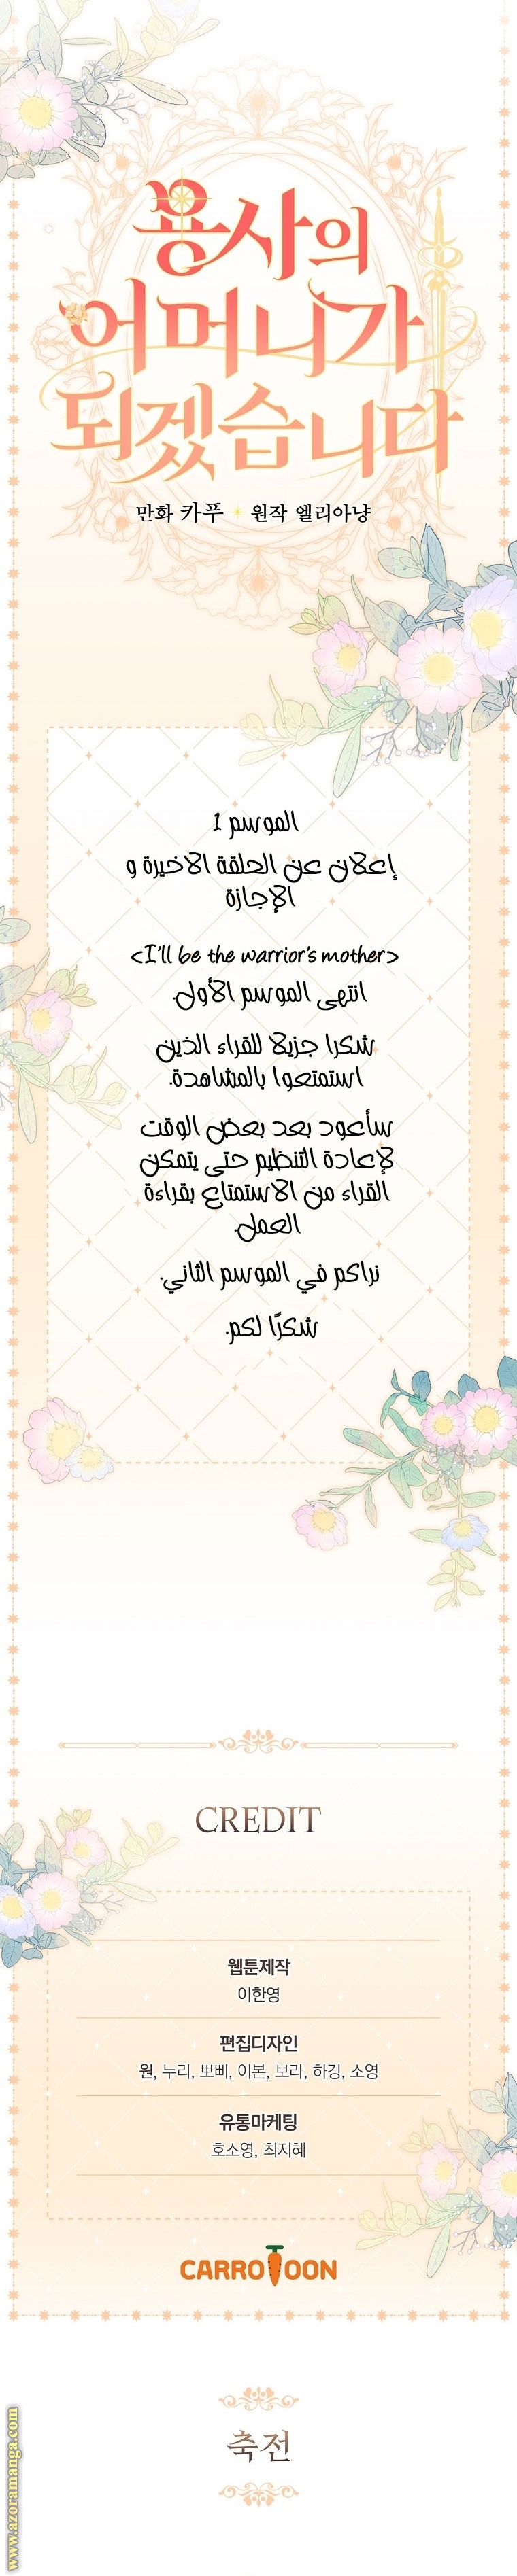 용사의
어머니가
되겠습니다
만화 카푸 원작 엘리아냥
الموسم 1
إعلان عن الحلقة الاخيرة و
الإجازة
<I'll be the warrior's mother>
انتهى الموسم الأول.
شكرا جزيلا للقراء الذين
استمتعوا بالمشاهدة.
سأعود بعد بعض الوقت
لإعادة التنظيم حتى يتمكن
القراء من الاستمتاع بقراءة
العمل.
نراكم في الموسم الثاني.
شكرًا لكم.
CREDIT
웹툰제작
이한영
편집디자인
원, 누리, 뽀삐, 이본, 보라, 하깅, 소영
유통마케팅
호소영, 최지혜
CARROTOON
축전
www.azoramanga.com